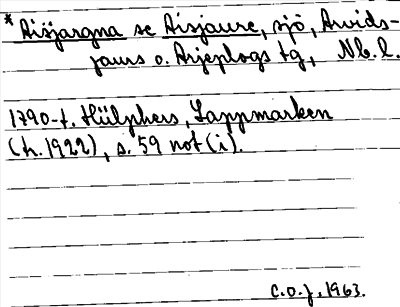 * Aisjargna se Aisjaure, sjö, Arvids-
jaurs o. Arjeplogs tg, Nb. l.
1790-t. Hülphers, Lappmarken
(tr. 1922), s. 59 not (i).
C.O.J., 1963.